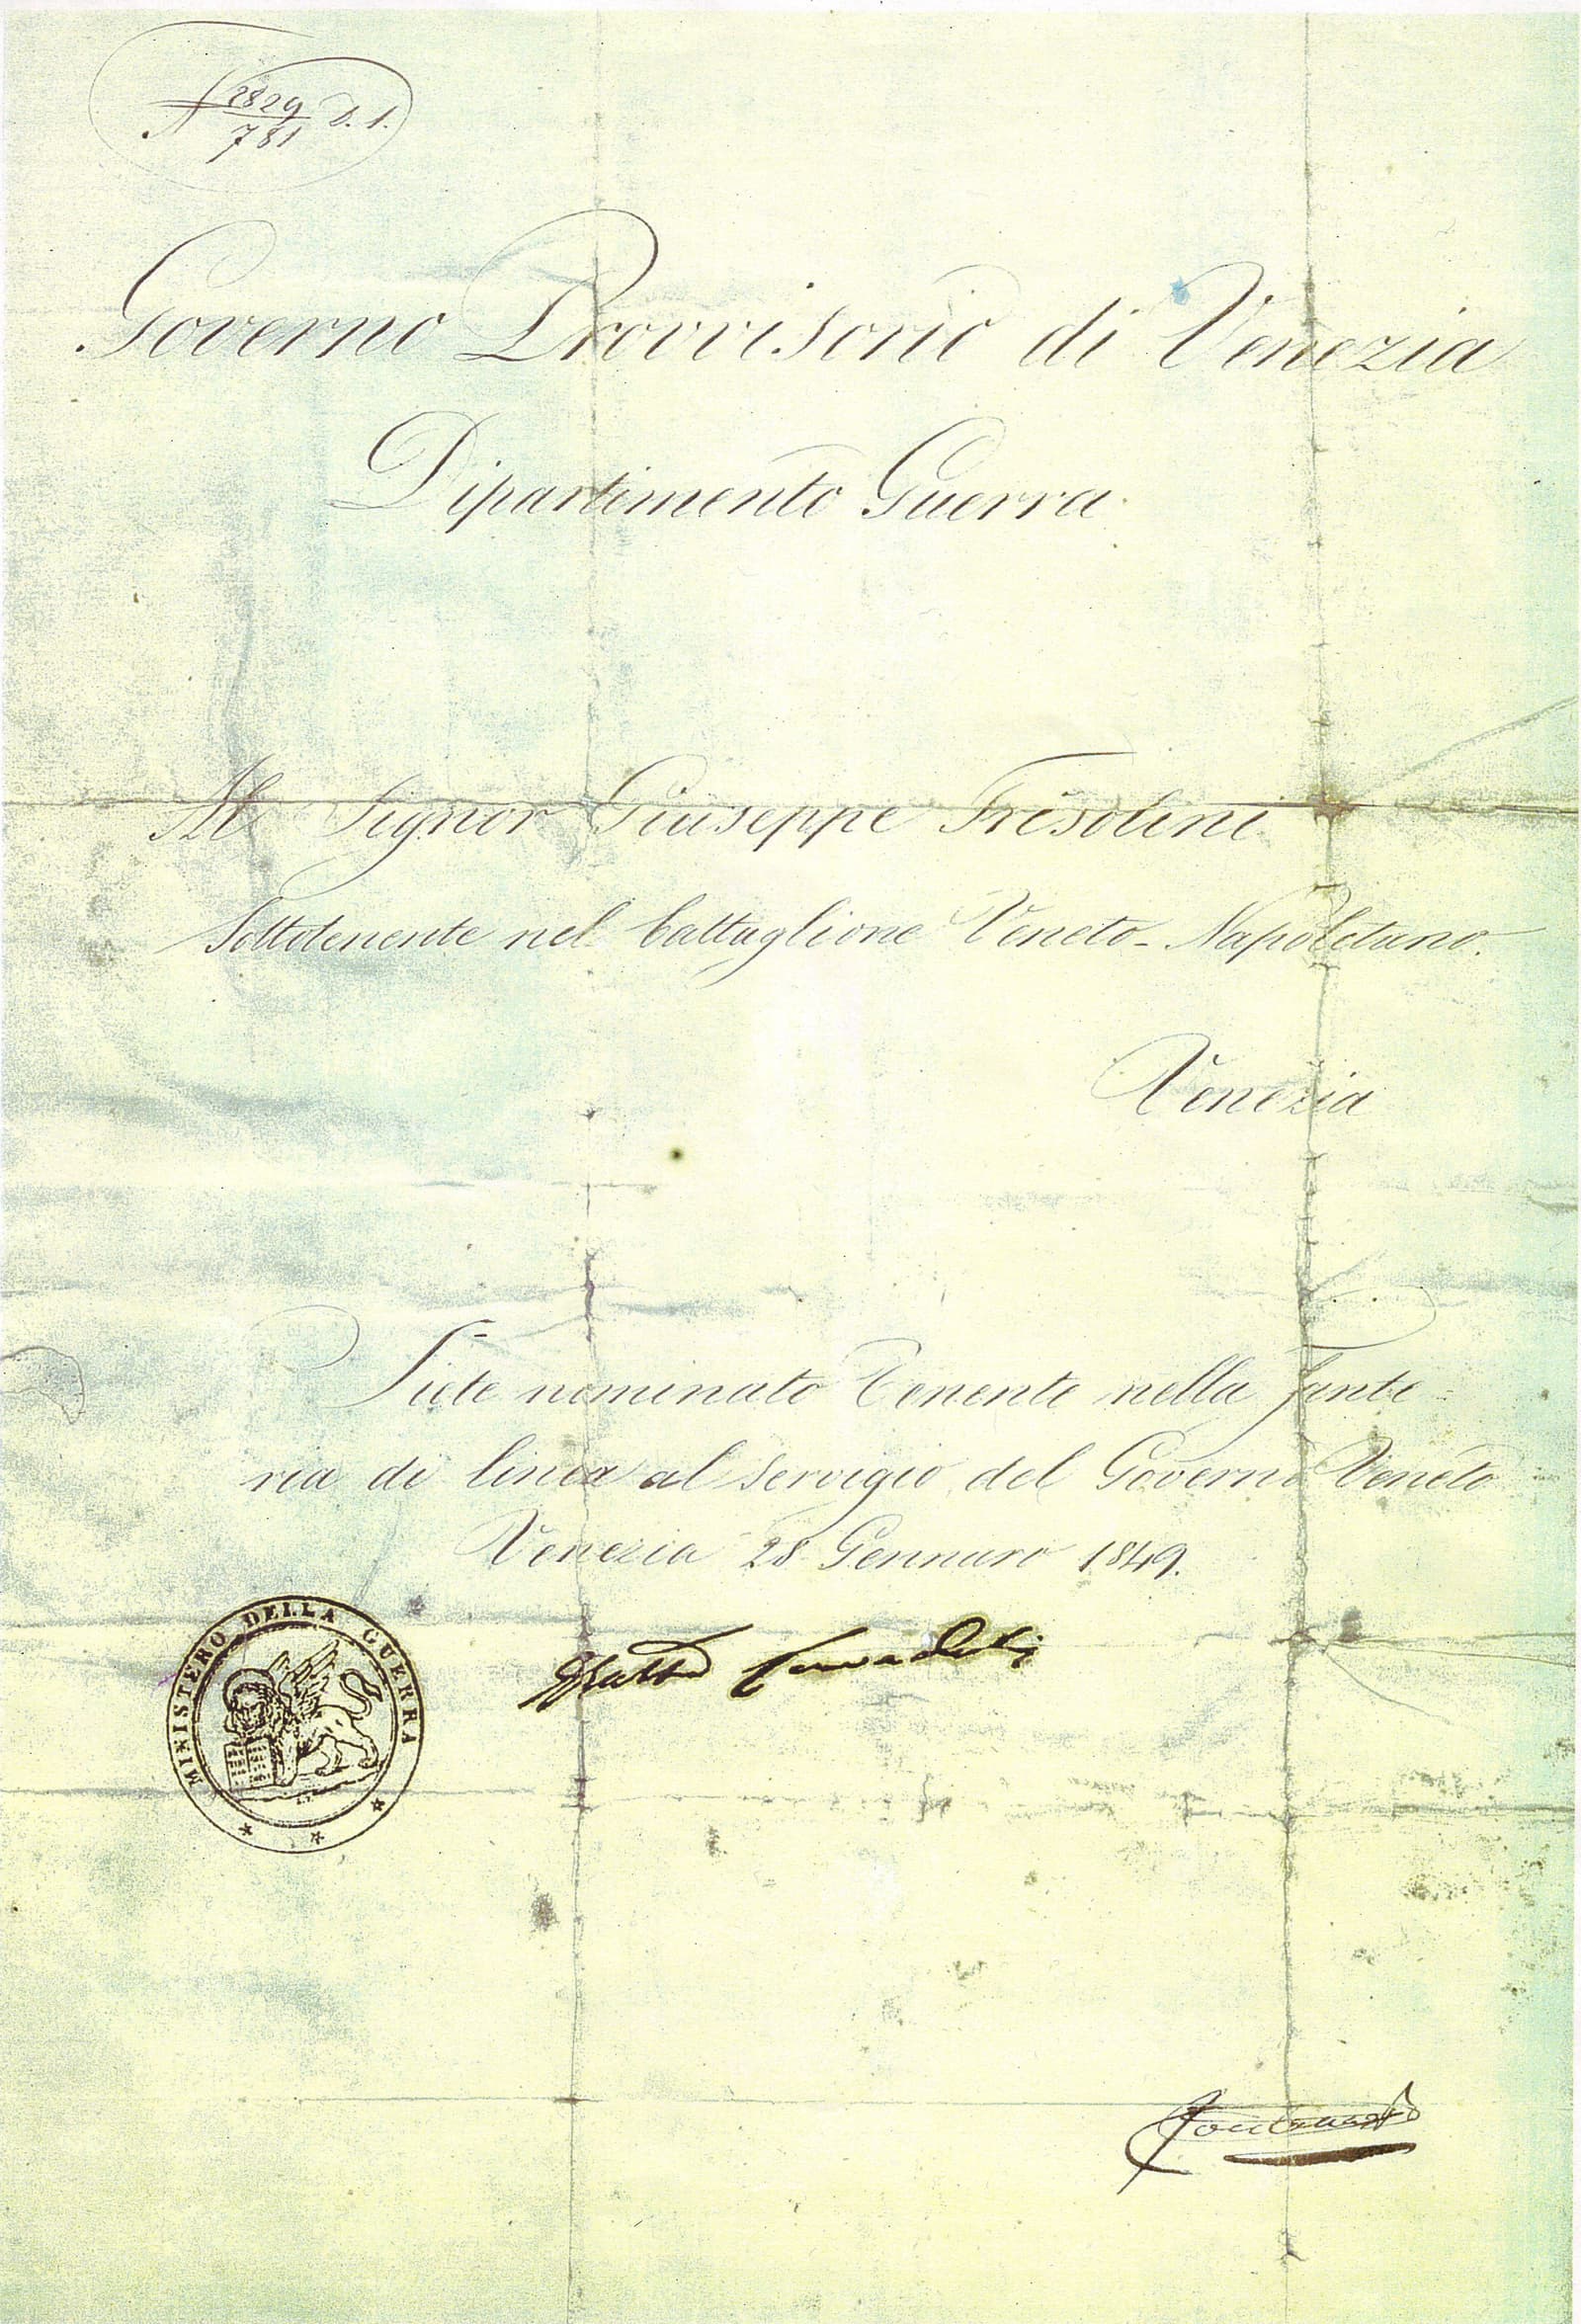 N 2829 D. 1.
781
Governo Provvisorio di Venezia
Dipartimento Guerra
Al Signor Giuseppe Frisolini
Sottotenente nel battaglione Veneto-Napoletano.
Venezia
Siete nominato Tenente nella fante=
ria di linea al servigio del Governo Veneto
Venezia 28 Gennaro 1849.
MINISTERO DELLA GUERRA